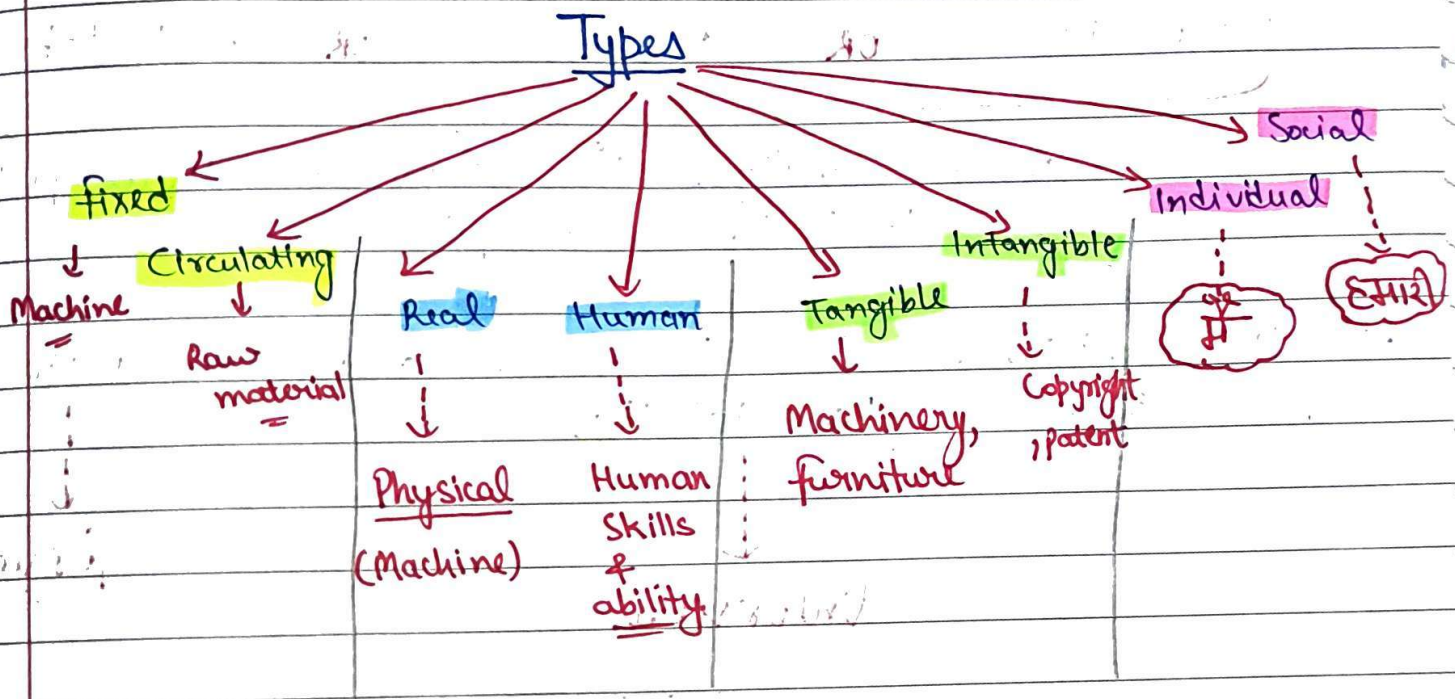 Types
Fixed
Machine
Circulating
Raw
material
Real
Physical
(Machine)
Human
Human
Skills
&
ability
Tangible
Machinery,
furniture
Intangible
Copyright
, patent
Individual
Social
हमारी